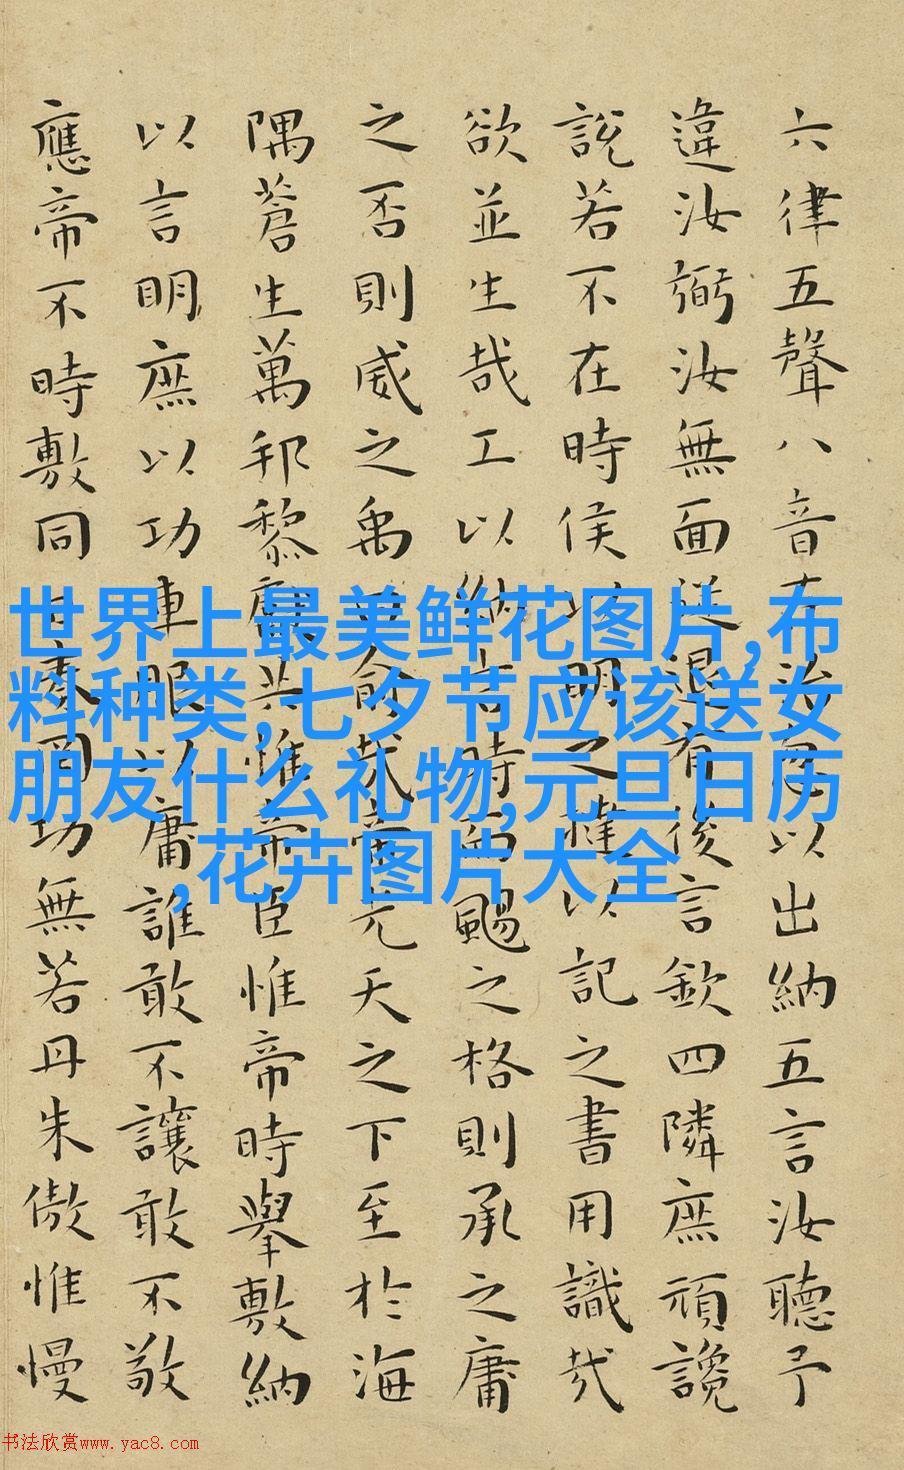 六律五聲八音在治忽以出納五言汝聽予
違汝弼汝無面退有後言欽四隣庶頑讒
說若不在時侯以明之撻以記之書用識哉
欲並生哉工以納言時而颺之格則承之庸
之否則威之禹曰俞哉帝光天之下至於海
隅蒼生萬邦黎獻共惟帝臣惟帝時舉敷納
以言明庶以功車服以庸誰敢不讓敢不敬
應帝不時敷同日奏罔功無若丹朱傲惟慢
世界上最美鲜花图片,布
料种类,七夕节应该送女
朋友什么礼物,元旦日历
,花卉图片大全
书法欣赏www.yac8.com